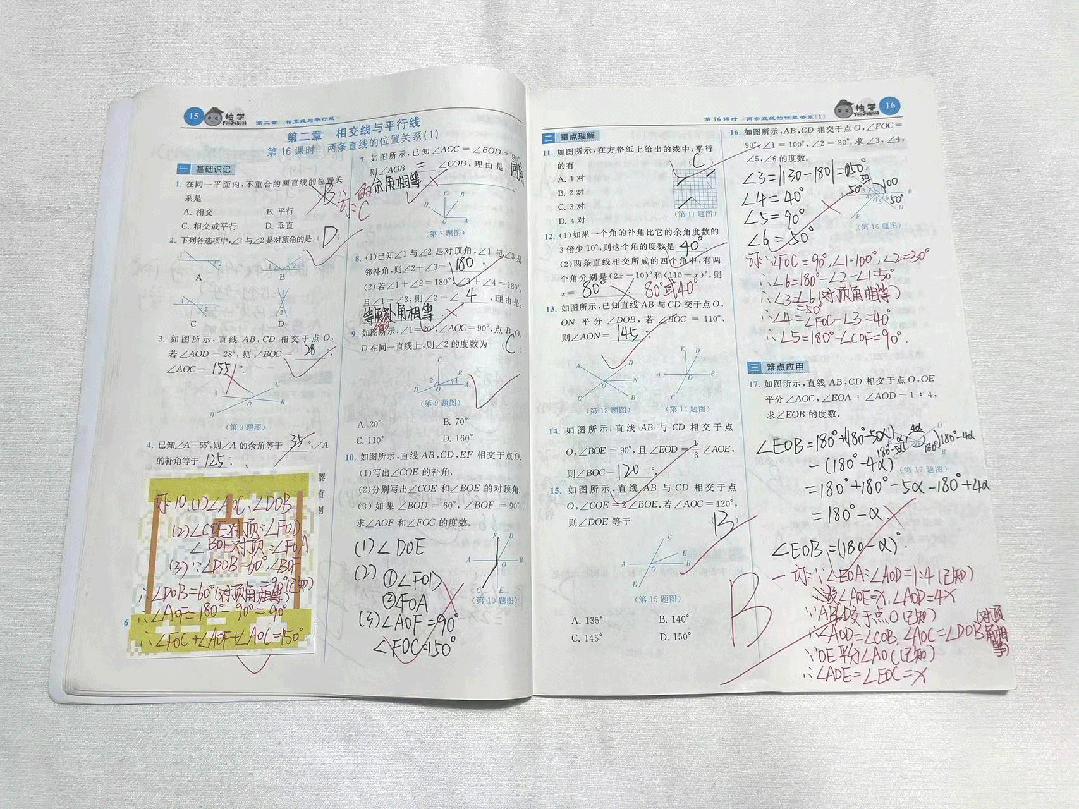 15
怡学
第二章 相交线与平行线
第二章 相交线与平行线
第 16 课时 两条直线的位置关系(1)
一 基础识记
1. 在同一平面内,不重合的两直线的位置关
系是
A. 相交 B. 平行
C. 相交或平行 D. 垂直
B
订: C
2. 下列各选项中,∠1与∠2是对顶角的是( D
A B
C D
3. 如图所示,直线 AB、CD 相交于点 O,
若∠AOD=28°,则∠BOC= 28
∠AOC= 155
(第 3 题图)
4. 已知∠A=55°,则∠A 的余角等于 35° ,∠A
的补角等于 125 .
订10.(1)∠AOC,∠DOB
∴∠DOB=60°(对顶角相等)
∴∠AOF=180°-90°=90°
∴∠FOC=∠AOF+∠AOC=150°
7. 如图所示,已知∠AOC=∠BOD=90°
则∠AOB = ∠COD,理由是 同角
的余角相等
8. (1)已知∠1与∠2是对顶角,∠1与∠3是
邻补角,则∠2+∠3= 180
(2)若∠1+∠2=180°,∠3+∠4=180°,
且∠1=∠3,则∠2=∠ 4 ,理由是
等角的补角相等
9. 如图所示,∠1=20°,∠AOC=90°,点 B、O、
D 在同一直线上,则∠2 的度数为 C
(第 9 题图)
A. 20° B. 70°
C. 110° D. 160°
10. 如图所示,直线 AB、CD、EF 相交于点O.
(1)写出∠COE 的补角.
(2)分别写出∠COE 和∠BOE 的对顶角
(3)如果∠BOD=60°,∠BOF=90°
求∠AOF 和∠FOC 的度数.
(1)∠DOE
(2) ①∠FOD
②∠FOA
(3)∠AOF=90°
∠FOC=150°
(第 10 题图)
第 16 课时 两条直线的位置关系(1)
怡学
16
二 重点理解
11. 如图所示,在方格纸上给出的线中,平行
的有 C
A. 1 对
B. 2 对
C. 3 对
D. 4 对
(第 11 题图)
12. (1)如果一个角的补角比它的余角度数的
3 倍少10°,则这个角的度数是 40°
(2)两条直线相交所成的四个角中,有两
个角分别是(2x-10)°和(110-x)°,则
x= 80° 80°或40°
13. 如图所示,已知直线 AB 与 CD 交于点 O,
ON 平分∠DOB,若∠BOC=110°,
则∠AON= 145
(第 13 题图) (第 14 题图)
14. 如图所示,直线 AB 与 CD 相交于点
O,∠BOE=90°,且∠EOD=1/3∠AOE,
则∠BOC= 120
15. 如图所示,直线 AB 与 CD 相交于点
O,∠COE=2∠BOE,若∠AOC=120°,
则∠DOE 等于
B
(第 15 题图)
A. 135° B. 140°
C. 145° D. 150°
B
16. 如图所示,AB、CD 相交于点 O,∠FOC=
90°,∠1=100°,∠2=30°,求∠3、∠4、
∠5、∠6 的度数.
∠4=40°
∠5=90°
∠6=50°
(第 16 题图)
订:∵∠FOC=90°,∠1=100°,∠2=30°
∴∠6=180°-∠2-∠1=50°
∴∠3=∠6(对顶角相等)
=50°
∴∠4=∠FOC-∠3=40°
∴∠5=180°-∠COF=90°.
三 难点应用
17. 如图所示,直线 AB、CD 相交于点 O,OE
平分∠AOC,∠EOA:∠AOD=1:4,
求∠EOB 的度数.
∠EOB=180°+(180°-5α)
-(180°-4α)
=180°+180°-5α-180°+4α
=180°-α
(第 17 题图)
∠EOB=(180-α)°.
订:∵∠EOA:∠AOD=1:4(已知)
∴设∠AOE=x,∠AOD=4x
∴∠AOD=∠COB,∠AOC=∠DOB(对顶角相等)
∵OE平分∠AOC(已知)
∴∠AOE=∠EOC=x